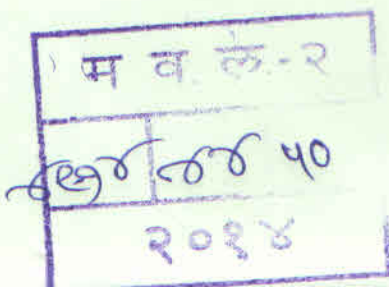 म व. ल.-२
४४ ५०
२०१४